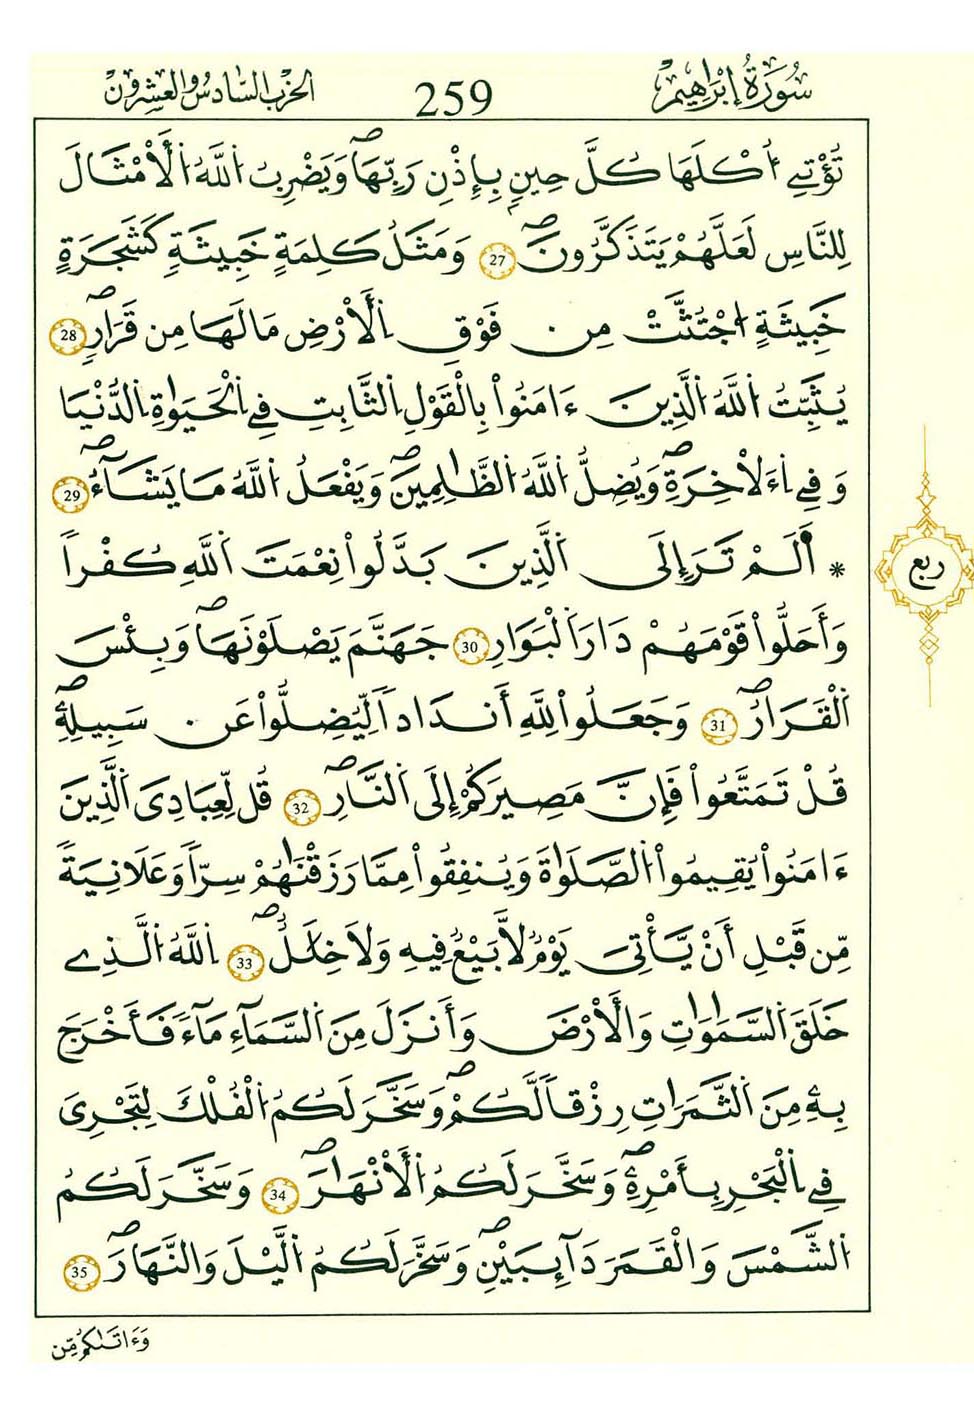 سُورَةُ إِبْرَاهِيمَ 259 الحزب السادس والعشرون
تُوْتِے أُكْلَهَا كُلَّ حِينِۢ بِإِذْنِ رَبِّهَاۖ وَيَضْرِبُ اُ۬للَّهُ اُ۬لَامْثَالَ
لِلنَّاسِ لَعَلَّهُمْ يَتَذَكَّرُونَۖ 27 وَمَثَلُ كَلِمَةٍ خَبِيثَةٖ كَشَجَرَةٍ
خَبِيثَةٍ اِ۟جْتُثَّتْ مِن فَوْقِ اِ۬لْأَرْضِ مَا لَهَا مِن قَرَارٖۖ 28
يُثَبِّتُ اُ۬للَّهُ اُ۬لَّذِينَ ءَامَنُواْ بِالْقَوْلِ اِ۬لثَّابِتِ فِے اِ۬لْحَيَوٰةِ اِ۬لدُّنْيَا
وَفِے اِ۬ءَلْأخِرَةِۖ وَيُضِلُّ اُ۬للَّهُ اُ۬لظَّٰلِمِينَۖ وَيَفْعَلُ اُ۬للَّهُ مَا يَشَآءُۖ 29
* أَلَمْ تَرَ إِلَى اَ۬لَّذِينَ بَدَّلُواْ نِعْمَتَ اَ۬للَّهِ كُفْراٗ
وَأَحَلُّواْ قَوْمَهُمْ دَارَ اَ۬لْبَوَارِ 30 جَهَنَّمَ يَصْلَوْنَهَاۖ وَبِئْسَ
اَ۬لْقَرَارُۖ 31 وَجَعَلُواْ لِلهِ أَندَاداٗ لِّيُضِلُّواْ عَن سَبِيلِهِۦۖ
قُلْ تَمَتَّعُواْ فَإِنَّ مَصِيرَكُمْ إِلَى اَ۬لنَّارِۖ 32 قُل لِّعِبَادِيَ اَ۬لَّذِينَ
ءَامَنُواْ يُقِيمُواْ اُ۬لصَّلَوٰةَ وَيُنفِقُواْ مِمَّا رَزَقْنَٰهُمْ سِرّاٗ وَعَلَانِيَةٗ
مِّن قَبْلِ أَنْ يَّأْتِيَ يَوْمٞ لَّا بَيْعٞ فِيهِ وَلَا خِلَٰلٌۖ 33 اُ۬للَّهُ اُ۬لَّذِے
خَلَقَ اَ۬لسَّمَٰوَٰتِ وَالْأَرْضَ وَأَنزَلَ مِنَ اَ۬لسَّمَآءِ مَآءٗ فَأَخْرَجَ
بِهِۦ مِنَ اَ۬لثَّمَرَٰتِ رِزْقاٗ لَّكُمْۖ وَسَخَّرَ لَكُمُ اُ۬لْفُلْكَ لِتَجْرِيَ
فِے اِ۬لْبَحْرِ بِأَمْرِهِۦۖ وَسَخَّرَ لَكُمُ اُ۬لْأَنْهَٰرَۖ 34 وَسَخَّرَ لَكُمُ
اُ۬لشَّمْسَ وَالْقَمَرَ دَآئِبَيْنِۖ وَسَخَّرَ لَكُمُ اُ۬لَّيْلَ وَالنَّهَارَۖ 35
ربع
وَءَاتَىٰكُم مِّن